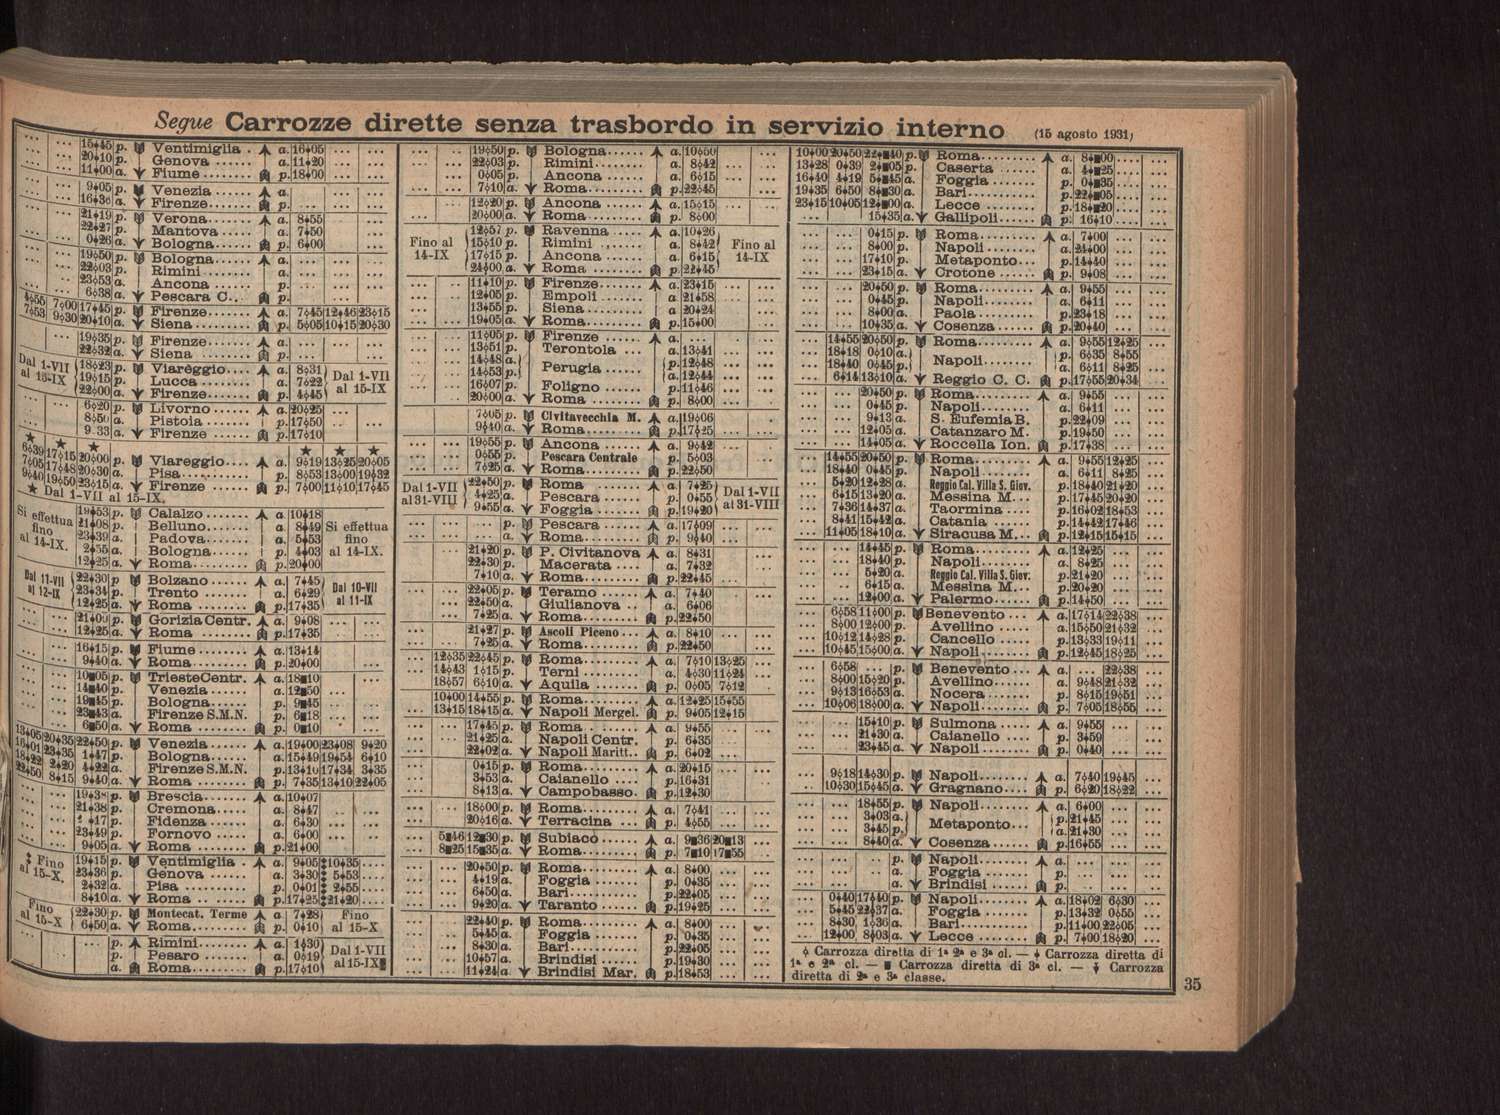 Segue Carrozze dirette senza trasbordo in servizio interno (15 agosto 1931)
... ... 15♦45 p. Ventimiglia . a. 16♦05 ... ...
... ... 20♦10 p. Genova ...... a. 11♦20 ... ...
... ... 11♦00 a. Fiume ....... p. 18♦00 ... ...
... ... 9♦05 p. Venezia ...... a. ... ... ...
... ... 16♦36 a. Firenze...... p. ... ... ...
... ... 21♦19 p. Verona...... a. 8♦55 ... ...
... ... 22♦27 p. Mantova ..... a. 7♦50 ... ...
... ... 0♦26 a. Bologna...... p. 6♦00 ... ...
... ... 19♦50 p. Bologna...... a. ... ... ...
... ... 22♦03 p. Rimini....... a. ... ... ...
... ... 23♦53 p. Ancona ...... p. ... ... ...
... ... 6♦38 a. Pescara C... p. ... ... ...
4♦55 7♦00 17♦45 p. Firenze...... a. 7♦45 12♦46 23♦15
7♦53 9♦30 20♦10 a. Siena........ p. 5♦05 10♦15 20♦30
... ... 19♦35 p. Firenze...... a. ... ... ...
... ... 22♦32 a. Siena ........ p. ... ... ...
Dal 1-VII al 15-IX 18♦23 p. Viareggio.... a. 8♦31 Dal 1-VII al 15-IX
19♦15 p. Lucca ....... a. 7♦22
22♦00 a. Firenze...... p. 4♦45
... ... 6♦20 p. Livorno ..... a. 20♦25 ... ...
... ... 8♦50 a. Pistoia ...... p. 17♦50 ... ...
... ... 9.33 a. Firenze ...... p. 17♦10
★ ★ ★ ★ ★ ★
6♦39 17♦15 20♦00 p. Viareggio.... a. 9♦19 13♦25 20♦05
7♦05 17♦48 20♦30 a. Pisa......... p. 8♦53 13♦00 19♦32
9♦40 19♦50 23♦15 a. Firenze ...... p. 7♦00 11♦10 17♦45
★ Dal 1-VII al 15-IX.
Si effettua fino al 14-IX. 19♦53 p. Calalzo...... a. 10♦18 Si effettua fino al 14-IX.
21♦08 p. Belluno...... a. 8♦49
23♦39 a. Padova...... p. 5♦53
2♦55 a. Bologna...... p. 4♦03
12♦25 a. Roma......... p. 20♦00
Dal 11-VII al 12-IX 22♦30 p Bolzano...... a. 7♦45 Dal 10-VII al 11-IX
23♦34 p. Trento ...... a. 6♦29
12♦25 a. Roma ........ p. 17♦35
... ... 21♦00 p. Gorizia Centr. a. 9♦08 ... ...
... ... 12♦25 a. Roma ........ p. 17♦35 ... ...
... ... 16♦15 p. Fiume ....... a. 13♦14
... ... 9♦40 a. Roma......... p. 20♦00 ...
... ... 10■05 p. TriesteCentr. a. 18■10 ...
... ... 14■40 p. Venezia ..... a. 12■50 ... ...
... ... 19■45 p. Bologna...... p. 9■45 ...
... ... 23■43 a. Firenze S.M.N. p. 6■18 ... ...
... ... 6■50 a. Roma ........ p. 0■10 ... ...
13♦05 20♦35 22♦50 p. Venezia ..... a. 19♦00 23♦08 9♦20
16♦01 23♦35 1♦47 p. Bologna...... a. 15♦49 19♦54 6♦10
18♦22 2♦20 4♦22 a. Firenze S.M.N. p. 13♦10 17♦34 3♦35
22♦50 8♦15 9♦40 a. Roma ........ p. 7♦35 13♦10 22♦05
... ... 19♦38 p. Brescia...... a. 10♦07
... ... 21♦38 p. Cremona..... a. 8♦47
... ... ♦17 p. Fidenza ..... a. 6♦30 ... ...
... ... 23♦49 p. Fornovo ..... a. 6♦00 ... ...
... ... 9♦05 a. Roma......... p. 21♦00 ... ...
Fino al 15-X. 19♦15 p. Ventimiglia . a. 9♦05 10♦35 ...
22♦36 p. Genova ...... a. 3♦30 5♦53 ...
2♦32 a. Pisa ......... p. 0♦01 2♦55 ...
8♦10 a. Roma ........ p. 17♦25 21♦20 ...
Fino al 15-X 22♦30 p. Montecat. Terme a. 7♦28 Fino al 15-X
6♦50 a. Roma......... p. 0♦10
... ... ... p. Rimini....... a. 1♦30 Dal 1-VII al 15-IX■
... ... ... p. Pesaro ...... a. 0♦19
... ... ... a. Roma......... p. 17♦10
... ... 19♦50 p. Bologna...... a. 10♦50
... ... 22♦03 p. Rimini........ a. 8♦42 ... ...
... ... 0♦05 p. Ancona ...... a. 6♦15 ... ...
... ... 7♦10 a. Roma......... p. 22♦45 ... ...
... ... 12♦20 p. Ancona ...... a. 15♦15 ... ...
... ... 20♦00 a. Roma......... p. 8♦00 ... ...
Fino al 14-IX 12♦57 p. Ravenna ..... a. 10♦26 Fino al 14-IX
15♦10 p. Rimini ...... a. 8♦42
17♦15 p. Ancona ...... a. 6♦15
24♦00 a. Roma ........ p. 22♦45
... ... 11♦10 p. Firenze...... a. 23♦15 ... ...
... ... 12♦05 p. Empoli ...... a. 21♦58 ... ...
... ... 13♦55 p. Siena ....... a 20♦24 ... ...
... ... 19♦05 a. Roma......... p. 15♦00 ... ...
... ... 11♦05 p. Firenze ..... a. ... ... ...
... ... 13♦51 p. Terontola ... a. 13♦41 ... ...
... ... 14♦48 a. Perugia ...... p. 12♦48 ... ...
... ... 14♦53 p. a. 12♦44 ... ...
... ... 16♦07 p. Foligno ...... p. 11♦46 ... ...
... ... 20♦00 a. Roma ........ p. 8♦00 ... ...
7♦05 p. Civitavecchia M. a. 19♦06
... ... 9♦40 a. Roma......... p. 17♦25 ... ...
... ... 19♦55 p. Ancona ...... a. 9♦42 ... ...
... ... 0♦55 p. Pescara Centrale p. 5♦03 ... ...
... ... 7♦25 a. Roma......... p. 22♦50 ... ...
Dal 1-VII al 31-VIII 22♦50 p. Roma ........ a. 7♦25 Dal 1-VII al 31-VIII
4♦25 a. Pescara ..... p. 0♦55
9♦55 a. Foggia ...... p. 19♦20
... ... ... p. Pescara ..... a. 17♦09 ... ...
... ... ... a. Roma......... p. 9♦40 ... ...
... ... 21♦20 p. P. Civitanova a. 8♦31 ... ...
... ... 22♦30 p. Macerata .... a. 7♦32 ... ...
... ... 7♦10 a. Roma......... p. 22♦45 ... ...
... ... 22♦05 p. Teramo ...... a. 7♦40 ... ...
... ... 22♦50 a. Giulianova .. p. 6♦06 ... ...
... ... 7♦25 a. Roma......... p. 22♦50 ... ...
... ... 21♦27 p. Ascoli Piceno... a. 8♦10 ... ...
... ... 7♦25 a. Roma......... p. 22♦50 ... ...
... 12♦35 22♦45 p. Roma......... a. 7♦10 13♦25 ...
... 14♦43 1♦15 p. Terni ....... a. 4♦30 11♦24 ...
... 18♦57 6♦10 a. Aquila ...... p. 0♦05 7♦12 .
10♦00 14♦55 p. Roma......... a. 12♦25 15♦55
... 13♦15 18♦15 a. Napoli Mergel. p. 9♦05 12♦15 ...
... ... 17♦45 p. Roma .. ...... a. 9♦55 ... ...
... ... 21♦25 a. Napoli Centr. p. 6♦35 ... ...
... ... 22♦02 a. Napoli Maritt.. p. 6♦02 ... ...
... ... 0♦15 p. Roma......... a. 20♦15 ... ...
... ... 3♦53 a. Caianello .... p. 16♦31 ... ...
... ... 8♦13 a. Campobasso. p. 12♦30 ... ...
... ... 18♦00 p. Roma......... a. 7♦41 ... ...
... ... 20♦16 a. Terracina ... p. 4♦55 ... ...
... 5■46 12■30 p. Subiaco ..... a. 9■36 20■13 ...
... 8■25 15■35 a. Roma......... p. 7■10 17■55 ...
... ... 20♦50 p. Roma......... a. 8♦00 ... ...
... ... 4♦19 a. Foggia ...... p. 0♦35 ... ...
... ... 6♦50 a. Bari.......... p. 22♦05 ... ...
... ... 9♦20 a. Taranto ..... p. 19♦25 ... ...
... ... 22♦40 p. Roma......... a. 8♦00 ... ...
... ... 5♦45 a. Foggia ...... p. 0♦35 ... ...
... ... 8♦30 a. Bari......... p. 22♦05 ... ...
... ... 10♦57 a. Brindisi ..... p. 19♦30 ... ...
... ... 11♦24 a. Brindisi Mar. p. 18♦53 ... ...
10♦00 20♦50 22■40 p. Roma......... a. 8■00 ... ...
13♦28 0♦39 2■05 p. Caserta ...... a. 4■25 ... ...
16♦40 4♦19 5■45 a. Foggia ...... p. 0■35 ... ...
19♦35 6♦50 8■30 a. Bari......... p. 22■05 ... ...
23♦15 10♦05 12■00 a. Lecce ........ p. 18■20 ... ...
... 15♦35 a. Gallipoli...... p. 16♦10 ... ...
... ... 0♦15 p. Roma......... a. 7♦00 ... ...
... ... 8♦00 p. Napoli........ a. 24♦00 ... ...
... ... 17♦10 p. Metaponto... p. 14♦40 ... ...
... ... 23♦15 a. Crotone ...... p. 9♦08 ... ...
... ... 20♦50 p. Roma......... a. 9♦55 ... ...
... ... 0♦45 p. Napoli........ a. 6♦11 ... ...
... ... 8♦00 a. Paola ........ p. 23♦18 ... ...
... ... 10♦35 a. Cosenza ..... p. 20♦40 ... ...
... 14♦55 20♦50 p. Roma......... a. 9♦55 12♦25 ...
... 18♦18 0♦10 a. Napoli....... p. 6♦35 8♦55 ...
... 18♦40 0♦45 p. a. 6♦11 8♦25 ...
... 6♦14 13♦10 a. Reggio C. C. p. 17♦55 20♦34 ...
... ... 20♦50 p. Roma......... a. 9♦55 ... ...
... ... 0♦45 p. Napoli........ a. 6♦11 ... ...
... ... 9♦13 a. S. Eufemia B. p. 22♦09 ... ...
... ... 12♦05 a. Catanzaro M. p. 19♦50 ... ...
... ... 14♦05 a. Roccella Ion. p. 17♦38 ... ...
... 14♦55 20♦50 p. Roma......... a. 9♦55 12♦25 ...
... 18♦40 0♦45 p. Napoli ....... a. 6♦11 8♦25 ...
... 5♦20 12♦28 a. Reggio Cal. Villa S. Giov. p. 18♦40 21♦20 ...
... 6♦15 13♦20 a. Messina M... p. 17♦45 20♦20 ...
... 7♦36 14♦37 a. Taormina .... p. 16♦02 18♦53 ...
... 8♦41 15♦42 a. Catania ..... p. 14♦42 17♦46 ...
... 11♦05 18♦10 a. Siracusa M... p. 12♦15 15♦15 ...
... ... 14♦45 p. Roma......... a. 12♦25 ... ...
... ... 18♦40 p. Napoli........ a. 8♦25 ... ...
... ... 5♦20 a. Reggio Cal. Villa S. Giov. p. 21♦20 ... ...
... ... 6♦15 a. Messina M... p. 20♦20 ... ...
... ... 12♦00 a. Palermo...... p. 14♦50 ... ...
... 6♦58 11♦00 p. Benevento ... a. 17♦14 22♦38 ...
... 8♦00 12♦00 p. Avellino ..... a. 15♦50 21♦32 ...
... 10♦12 14♦28 p. Cancello ..... p. 13♦33 19♦11 ...
... 10♦45 15♦00 a. Napoli........ p. 12♦45 18♦25 ...
... 6♦58 ... p. Benevento ... a. ... 22♦38 ...
... 8♦00 15♦20 p. Avellino...... a. 9♦48 21♦32 ...
... 9♦13 16♦53 a. Nocera ....... p. 8♦15 19♦51 ...
... 10♦06 18♦00 a. Napoli........ p. 7♦05 18♦55 ...
... ... 15♦10 p. Sulmona .... a. 9♦55 ... ...
... ... 21♦30 a. Caianello .... p. 3♦59 ... ...
... ... 23♦45 a. Napoli........ p. 0♦40 ... ...
... 9♦18 14♦30 p. Napoli........ a. 7♦40 19♦45 ...
.. 10♦30 15♦45 a. Gragnano.... p. 6♦20 18♦22 ...
... ... 18♦55 p. Napoli........ a. 6♦00 ... ...
... ... 3♦03 a. Metaponto... p. 21♦45 ... ...
... ... 3♦45 p. a. 21♦30 ... ...
... ... 8♦40 a. Cosenza ..... p. 16♦55 ... ...
... ... ... p. Napoli........ a. ... ... ...
... ... ... a. Foggia ...... p. ... ... ...
... ... ... a. Brindisi ...... p. ... ... ...
... 0♦40 17♦40 p. Napoli ....... a. 18♦02 6♦30 ...
... 5♦45 22♦37 a. Foggia ...... p. 13♦32 0♦55 ...
... 8♦30 1♦36 a. Bari.......... p. 11♦00 22♦05 ...
... 12♦00 8♦03 a. Lecce ........ p. 7♦00 18♦20 ...
♦ Carrozza diretta di 1ª 2ª e 3ª cl. — ♦ Carrozza diretta di
1ª e 2ª cl. — ■ Carrozza diretta di 3ª cl. — ♦ Carrozza
diretta di 2ª e 3ª classe.
35